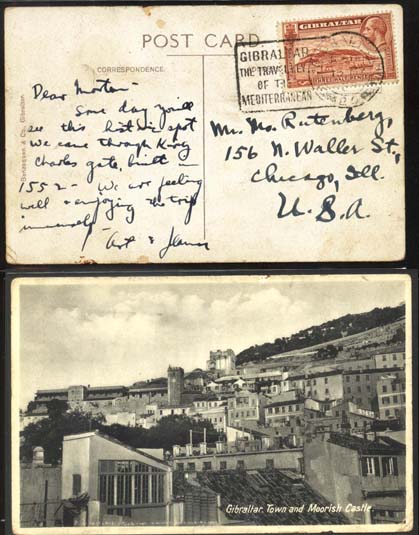 POST CARD.
CORRESPONDENCE.
GIBRALTAR
GIBRALTAR
THE TRAVEL KEY
OF THE
MEDITERRANEAN
Dear Morton -
Some day you'll
see this historic spot
We came through King
Charles gate, built
1552 - We are feeling
well & enjoying the trip
immensely
Art &
Mr. Mo. Rutenberg,
156 N. Waller St.,
Chicago, Ill.
U.S.A.
Benzaquen & Co., Gibraltar.
Gibraltar. Town and Moorish Castle.